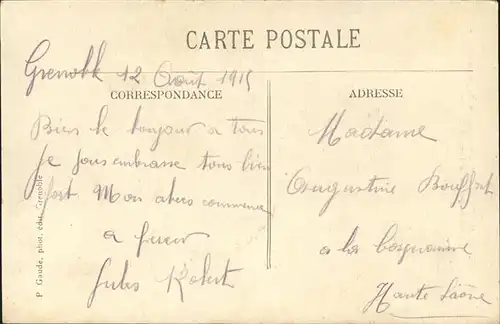 CARTE POSTALE
Grenoble 12 Août 1915
CORRESPONDANCE
Bien le bonjour a tous
je vous embrasse tous bien
fort Mon commence
a
Jules Robert
ADRESSE
Madame
Augustine
a la
Haute Saône
P Gaude, phot. édit. Grenoble